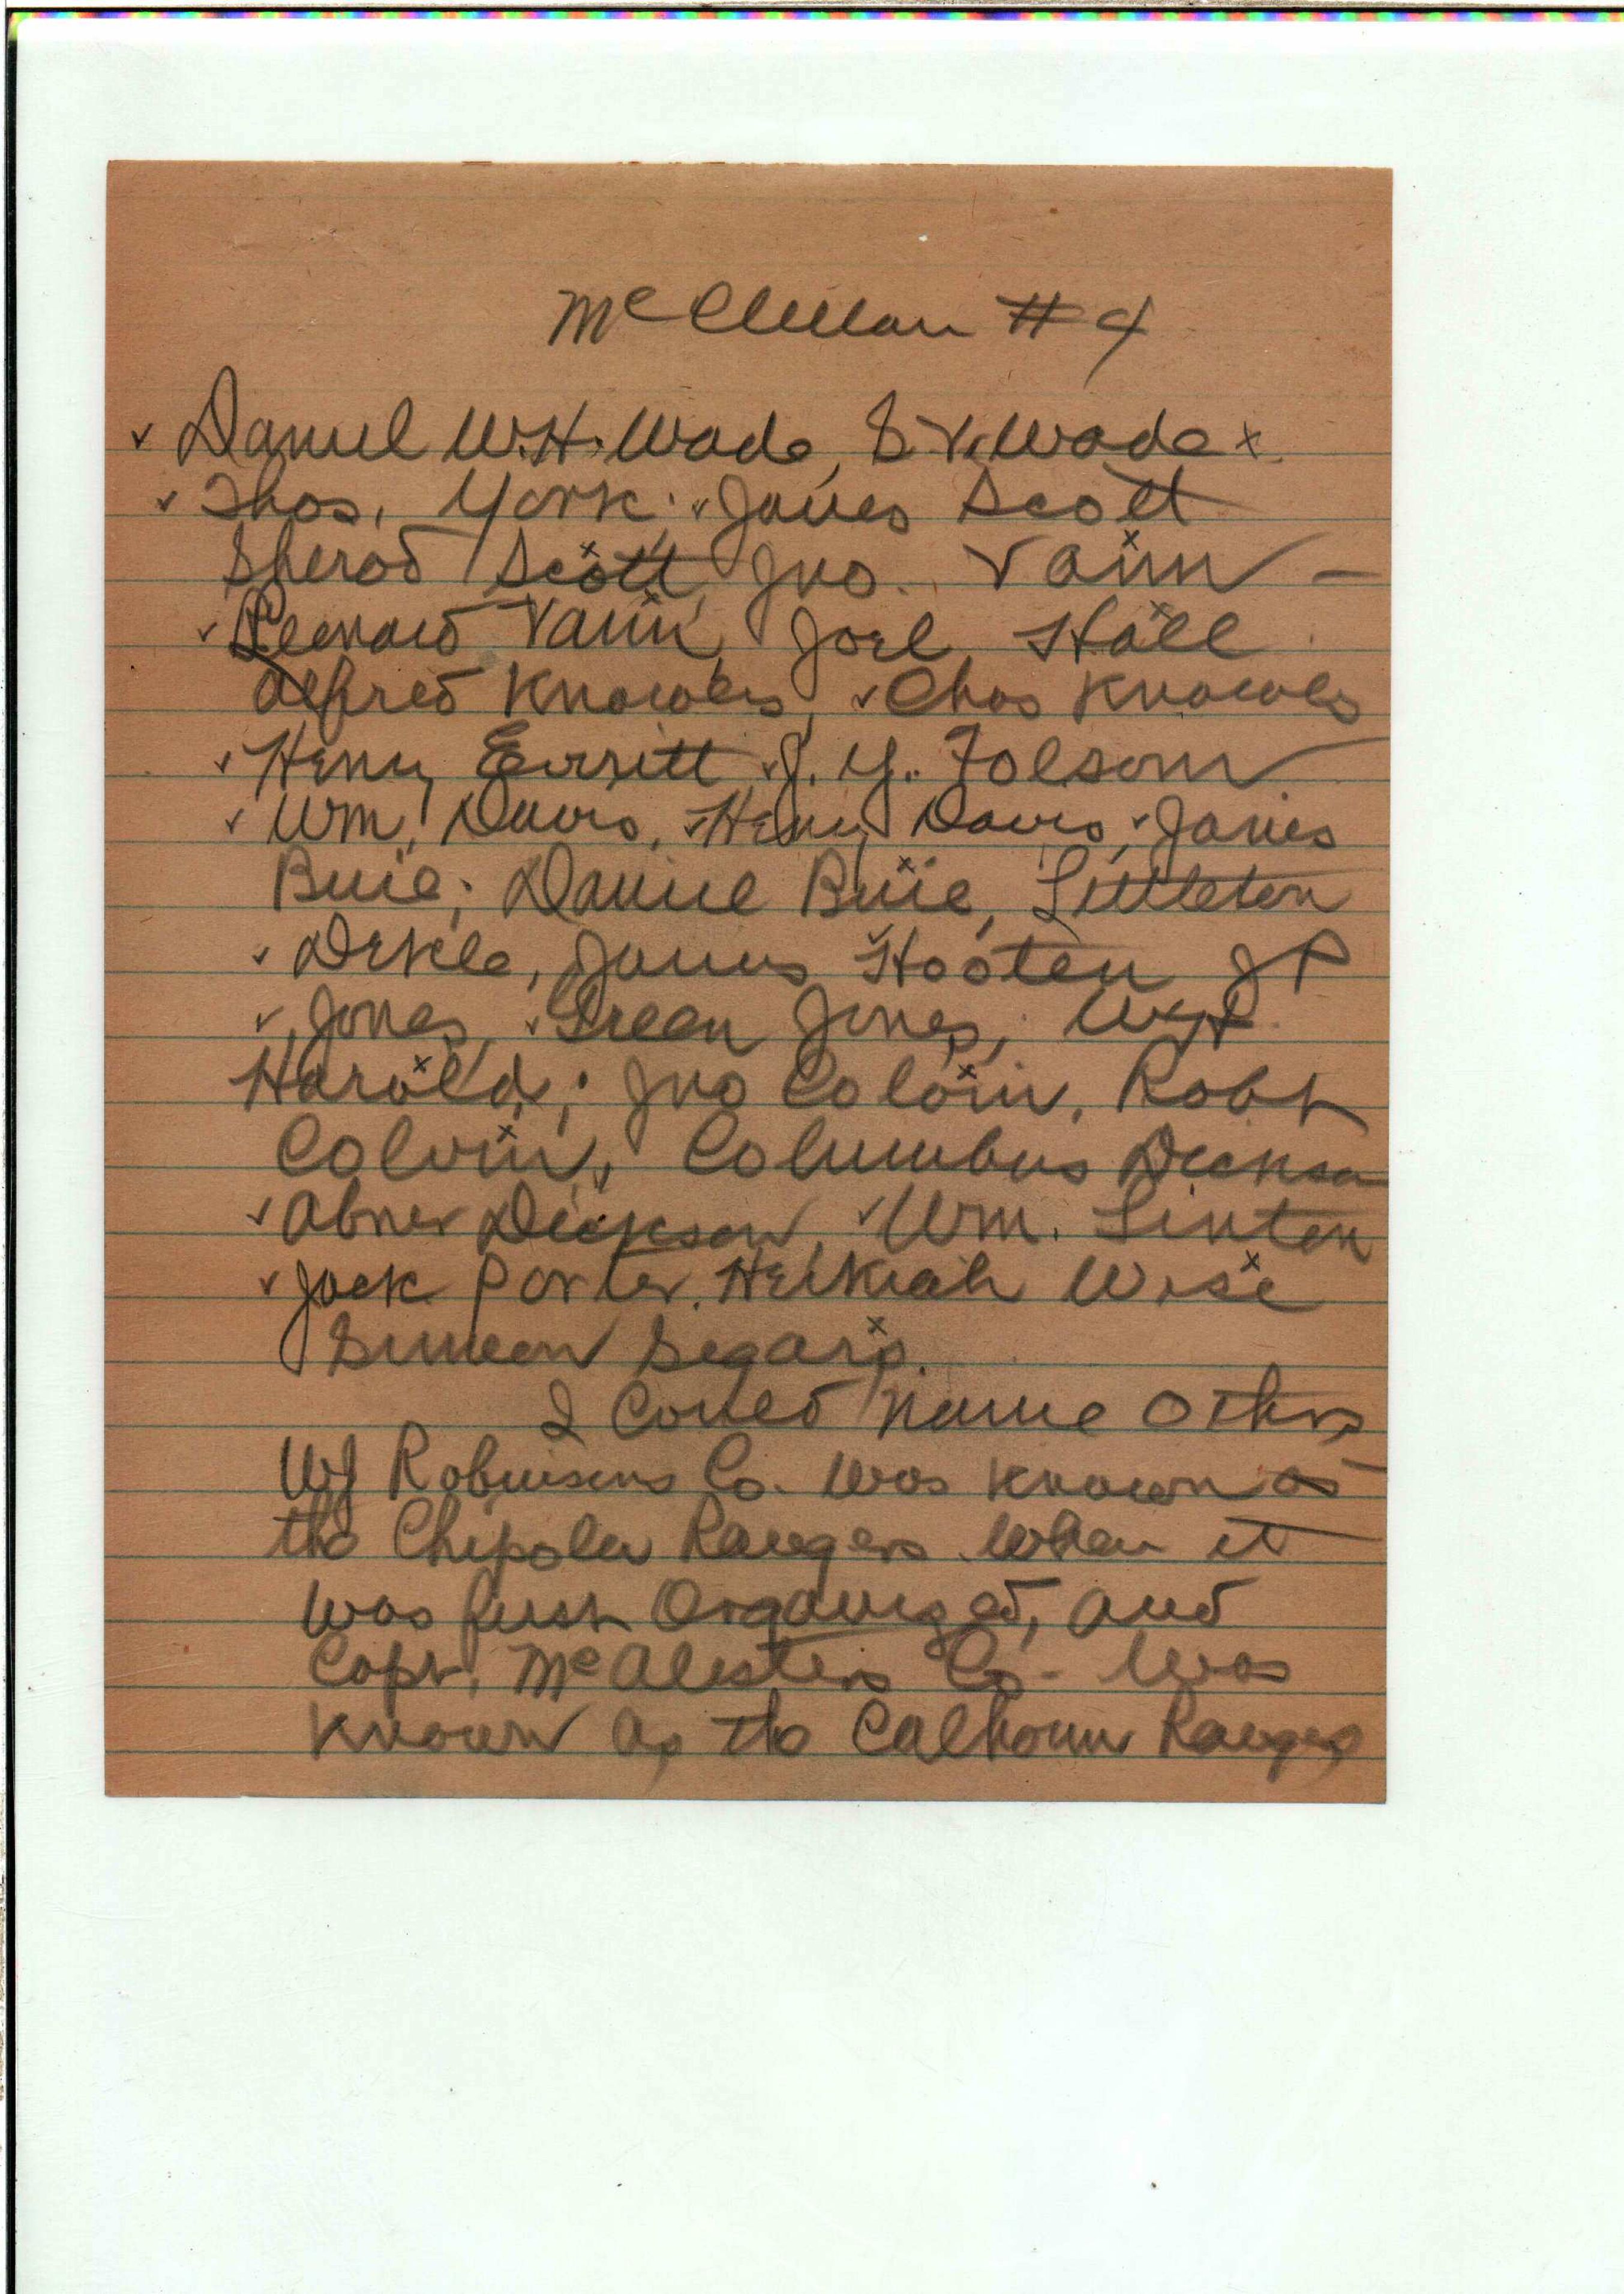 McClellan #4
✓ Daniel W.H. Wade, S.V. Wade x
✓ Thos. York. ✓ James Scott
Sherod Scott, Jno. Vann –
✓ Leonard Vann, Joel Hall
Alfred Knowles, ✓ Chas Knowles
✓ Henry Everritt ✓ J. Y. Folsom
✓ Wm. Davis, ✓ Henry Davis, ✓ James
Buie; Daniel Buie, Littleton
✓ Dekle, James Hooten J P
✓ Jones, ✓ Green Jones,
Harold; Jno Colvin, Robt
Colvin, Columbus Dickson
✓ Abner Dickson, ✓ Wm. Linton
✓ Jack Porter. Helkiah Wise
Simeon Segars.
I Could Name Others
WJ Robinsons Co. was Known as
the Chipola Rangers when it
was first Organized, and
Capt. McAlisters Co- was
Known as the Calhoun Rangers